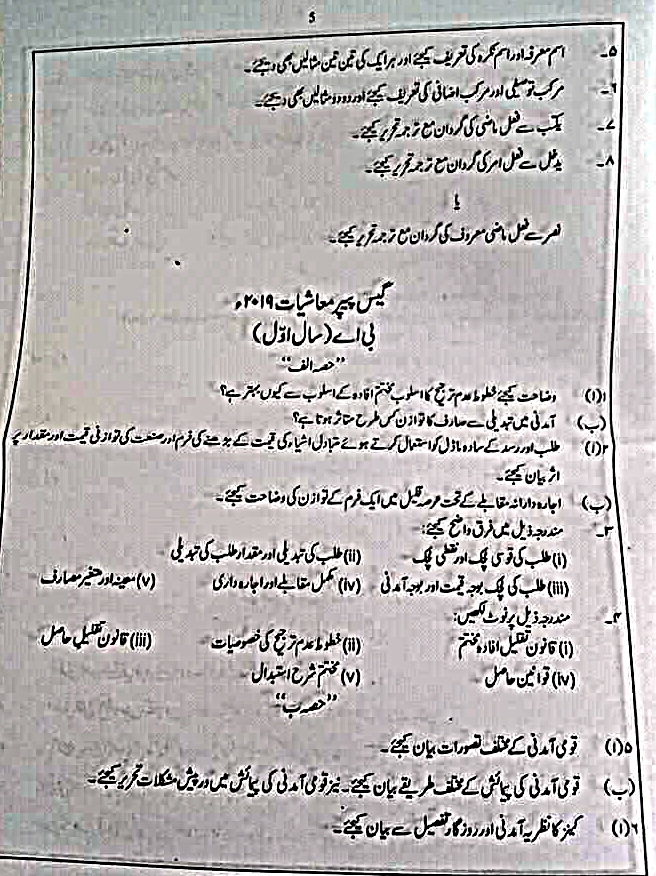 5
۵۔ اسم معرفہ اور اسم نکرہ کی تعریف کیجئے اور ہر ایک کی تین تین مثالیں بھی دیجئے۔
۶۔ مرکب توصیفی اور مرکب اضافی کی تعریف کیجئے اور دو دو مثالیں بھی دیجئے۔
۷۔ یکتب سے فعل ماضی کی گردان مع ترجمہ تحریر کیجئے۔
۸۔ یدخل سے فعل امر کی گردان مع ترجمہ تحریر کیجئے۔
یا
نصر سے فعل ماضی معروف کی گردان مع ترجمہ تحریر کیجئے۔
گیس پیپر معاشیات ۲۰۱۹ء
بی اے (سال اوّل)
"حصہ الف"
۱(ا) وضاحت کیجئے خطوط عدم ترجیح کا اسلوب مختتم افادہ کے اسلوب سے کیوں بہتر ہے؟
(ب) آمدنی میں تبدیلی سے صارف کا توازن کس طرح متاثر ہوتا ہے؟
۲(ا) طلب اور رسد کے سادہ ماڈل کو استعمال کرتے ہوئے متبادل اشیاء کی قیمت کے بڑھنے کی فرم اور صنعت کی توازنی قیمت اور مقدار پر
اثر بیان کیجئے۔
(ب) اجارہ دارانہ مقابلے کے تحت عرصہ قلیل میں ایک فرم کے توازن کی وضاحت کیجئے۔
۳۔ مندرجہ ذیل میں فرق واضح کیجئے:
(i) طلب کی قوسی لچک اور نقطی لچک (ii) طلب کی تبدیلی اور مقدار طلب کی تبدیلی
(iii) طلب کی لچک بوجہ قیمت اور بوجہ آمدنی (iv) مکمل مقابلے اور اجارہ داری (v) معینہ اور متغیر مصارف
۴۔ مندرجہ ذیل پر نوٹ لکھیں:
(i) قانون تقلیل افادہ مختتم (ii) خطوط عدم ترجیح کی خصوصیات (iii) قانون تقلیل حاصل
(iv) قوانین حاصل (v) مختتم شرح استبدال
"حصہ ب"
۵(ا) قومی آمدنی کے مختلف تصورات بیان کیجئے۔
(ب) قومی آمدنی کی پیمائش کے مختلف طریقے بیان کیجئے۔ نیز قومی آمدنی کی پیمائش میں درپیش مشکلات تحریر کیجئے۔
۶(ا) کینز کا نظریہ آمدنی اور روزگار تفصیل سے بیان کیجئے۔